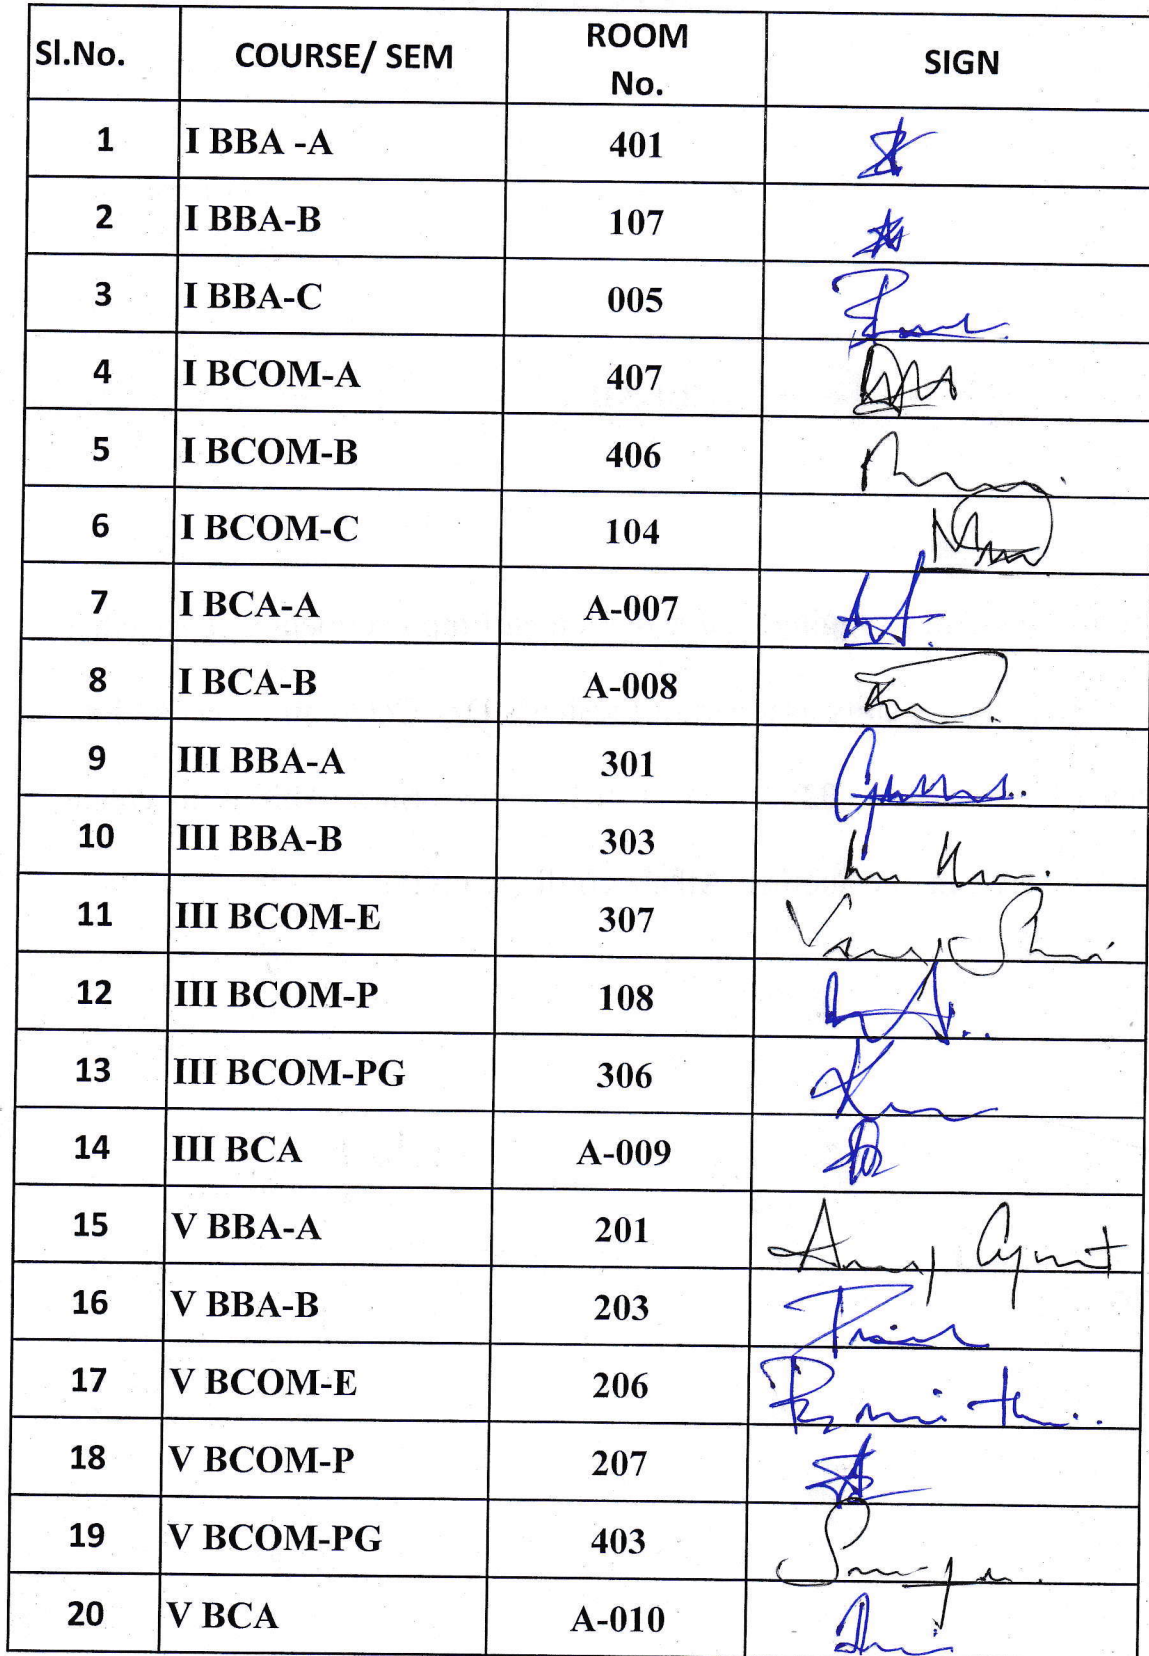 Sl.No. COURSE/ SEM ROOM No. SIGN
1 I BBA -A 401
2 I BBA-B 107
3 I BBA-C 005
4 I BCOM-A 407
5 I BCOM-B 406
6 I BCOM-C 104
7 I BCA-A A-007
8 I BCA-B A-008
9 III BBA-A 301
10 III BBA-B 303
11 III BCOM-E 307
12 III BCOM-P 108
13 III BCOM-PG 306
14 III BCA A-009
15 V BBA-A 201
16 V BBA-B 203
17 V BCOM-E 206
18 V BCOM-P 207
19 V BCOM-PG 403
20 V BCA A-010